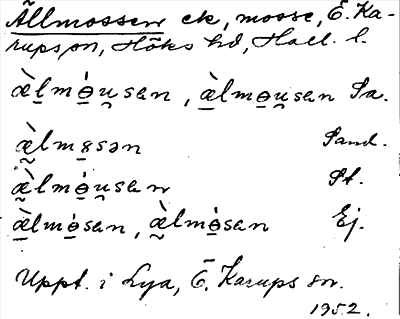 Ällmossen ek, mosse, Ö. Ka-
rups sn, Höks hd, Hall. l.
æ̀l̠mö́u̠sen, æ̠̀lmo̠u̠sen Sa.
æ̀lmo̠sən Sand.
æ̀lmó̠u̠sen St.
æ̠̀lmo̠sen, æ̀lmò̠sen Ej.
Uppt. i Lya, Ö. Karups sn.
1952.